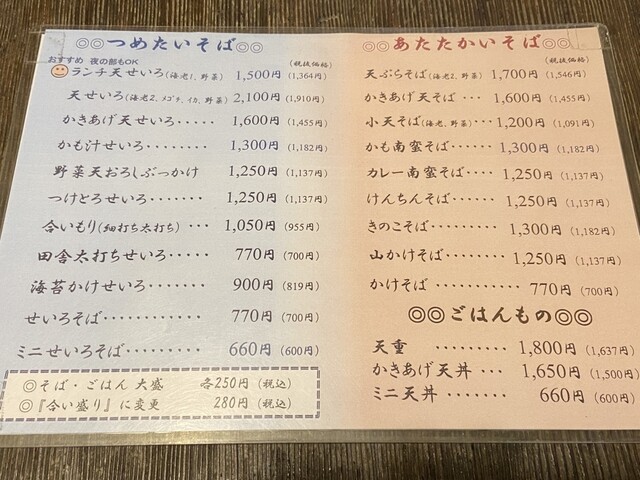 ◎◎つめたいそば◎◎
おすすめ 夜の部もOK
(税抜価格)
ランチ天せいろ(海老1、野菜) 1,500円(1,364円)
天せいろ(海老2、メゴチ、イカ、野菜) 2,100円(1,910円)
かきあげ天せいろ・・・・・ 1,600円(1,455円)
かも汁せいろ・・・・・・・・ 1,300円(1,182円)
野菜天おろしぶっかけ 1,250円(1,137円)
つけとろせいろ・・・・・・・ 1,250円(1,137円)
合いもり(細打ち太打ち) ・・・ 1,050円(955円)
田舎太打ちせいろ・・・・・・ 770円(700円)
海苔かけせいろ・・・・・・・ 900円(819円)
せいろそば・・・・・・・・・・・ 770円(700円)
ミニせいろそば・・・・・・・・・ 660円(600円)
◎そば・ごはん 大盛 各250円(税込)
◎『合い盛り』に変更 280円(税込)
◎◎あたたかいそば◎◎
(税抜価格)
天ぷらそば(海老2、野菜) 1,700円(1,546円)
かきあげ天そば ・・・ 1,600円(1,455円)
小天そば(海老、野菜)・・・ 1,200円(1,091円)
かも南蛮そば・・・・・ 1,300円(1,182円)
カレー南蛮そば・・・・ 1,250円(1,137円)
けんちんそば・・・・・・ 1,250円(1,137円)
きのこそば・・・・・・・・ 1,300円(1,182円)
山かけそば・・・・・・・ 1,250円(1,137円)
かけそば・・・・・・・・・・ 770円(700円)
◎◎ごはんもの◎◎
天重 ・・・・・・・・・ 1,800円(1,637円)
かきあげ天丼・・・ 1,650円(1,500円)
ミニ天丼・・・・・・・・ 660円(600円)